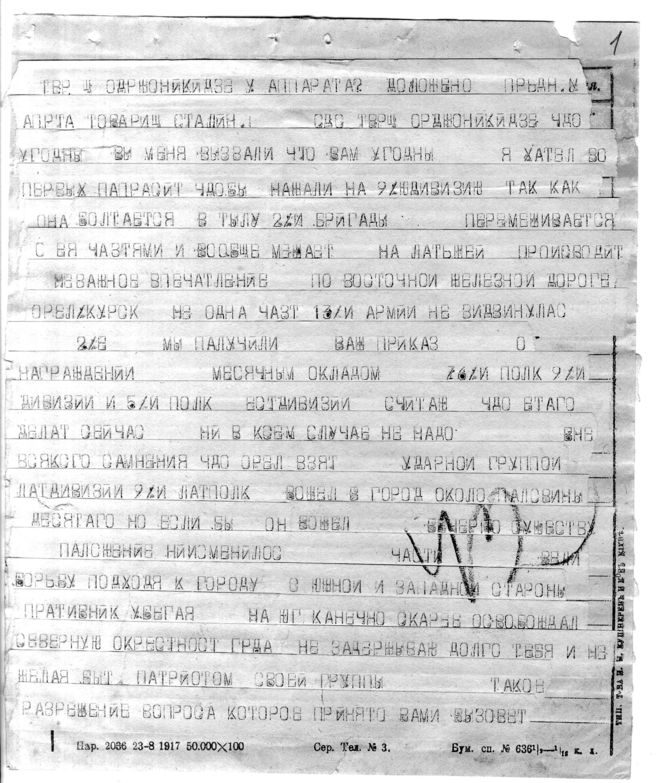 1
ТВР Ф ОДРЖОНИКИДЗЕ У АППАРАТА? ДОЛОЖЕНО ПРЬДН.У л.
АПРТА ТОВАРИЩ СТАЛИН.! СДС ТВРЩ ОРДЖОНИКИДЗЕ ЧДО
УГОДНЫ ВЫ МЕНЯ ВЫЗВАЛИ ЧТО ВАМ УГОДНЫ Я ХАТЕЛ ВО
ПЕРВЫХ ПАПРАСИТ ЧДОБЫ НАЖАЛИ НА 9%ЮДИВИЗИЮ ТАК КАК
ОНА БОЛТАЕТСЯ В ТЫЛУ 2%И БРИГАДЫ ПЕРЕМЕШИВАЕТСЯ
С ЕЯ ЧАЗТЯМИ И ВООБЩЕ МЕШАЕТ НА ЛАТЫШЕЙ ПРОИСВОДИТ
НЕВАЖНОЕ ВПЕЧАТЛЕНИЕ ПО ВОСТОЧНОЙ ЖЕЛЕЗНОЙ ДОРОГЕ
ОРЕЛ%КУРСК НЕ ОДНА ЧАЗТ 13%И АРМИИ НЕ ВИДВИНУЛАС
2%Е МЫ ПАЛУЧИЛИ ВАШ ПРИКАЗ О
НАГРАЖДЕНИИ МЕСЯЧНЫМ ОКЛАДОМ 76%И ПОЛК 9%И
ДИВИЗИИ И 5%И ПОЛК ЕСТДИВИЗИИ СЧИТАЖ ЧДО ЕТАГО
ДЕЛАТ СЕЙЧАС НИ В КОЕМ СЛУЧАЕ НЕ НАДО ВНЕ
ВСЯКОГО САМНЕНИЯ ЧДО ОРЕЛ ВЗЯТ УДАРНОЙ ГРУППОЙ
ЛАТДИВИЗИИ 9%И ЛАТПОЛК ВОШЕЛ В ГОРОД ОКОЛО ПАЛОВИНЫ
ДЕСЯТАГО НО ЕСЛИ БЫ ОН ВОШЕЛ СУЖЕСТВУ
ПАЛОЖЕНИЕ НЙИСМЕНИЛОС ЧАСТИ ВЕЛИ
БОРЬБУ ПОДХОДЯ К ГОРОДУ С ЮЖНОЙ И ЗАПАДНОЙ СТАРОНЫ
ПРАТИВНИК УБЕГАЯ НА ЮГ КАНЕЧНО СКАРЕЕ ОСВОБОЖДАЛ
СЕВЕРНУЮ ОКРЕСТНОСТ ГРДА НЕ ЗАДЕРЖЫВАЖ ДОЛГО ТЕБЯ И НЕ
ЖЕЛАЯ БЫТ ПАТРИОТОМ СВОЕЙ ГРУППЫ ТАКОЕ
РАЗРЕШЕНИЕ ВОПРОСА КОТОРОЕ ПРИНЯТО ВАМИ ВЫЗОВЕТ
Нар. 2036 23-8 1917 50.000×100 Сер. Тел. № 3. Бум. сп. № 636